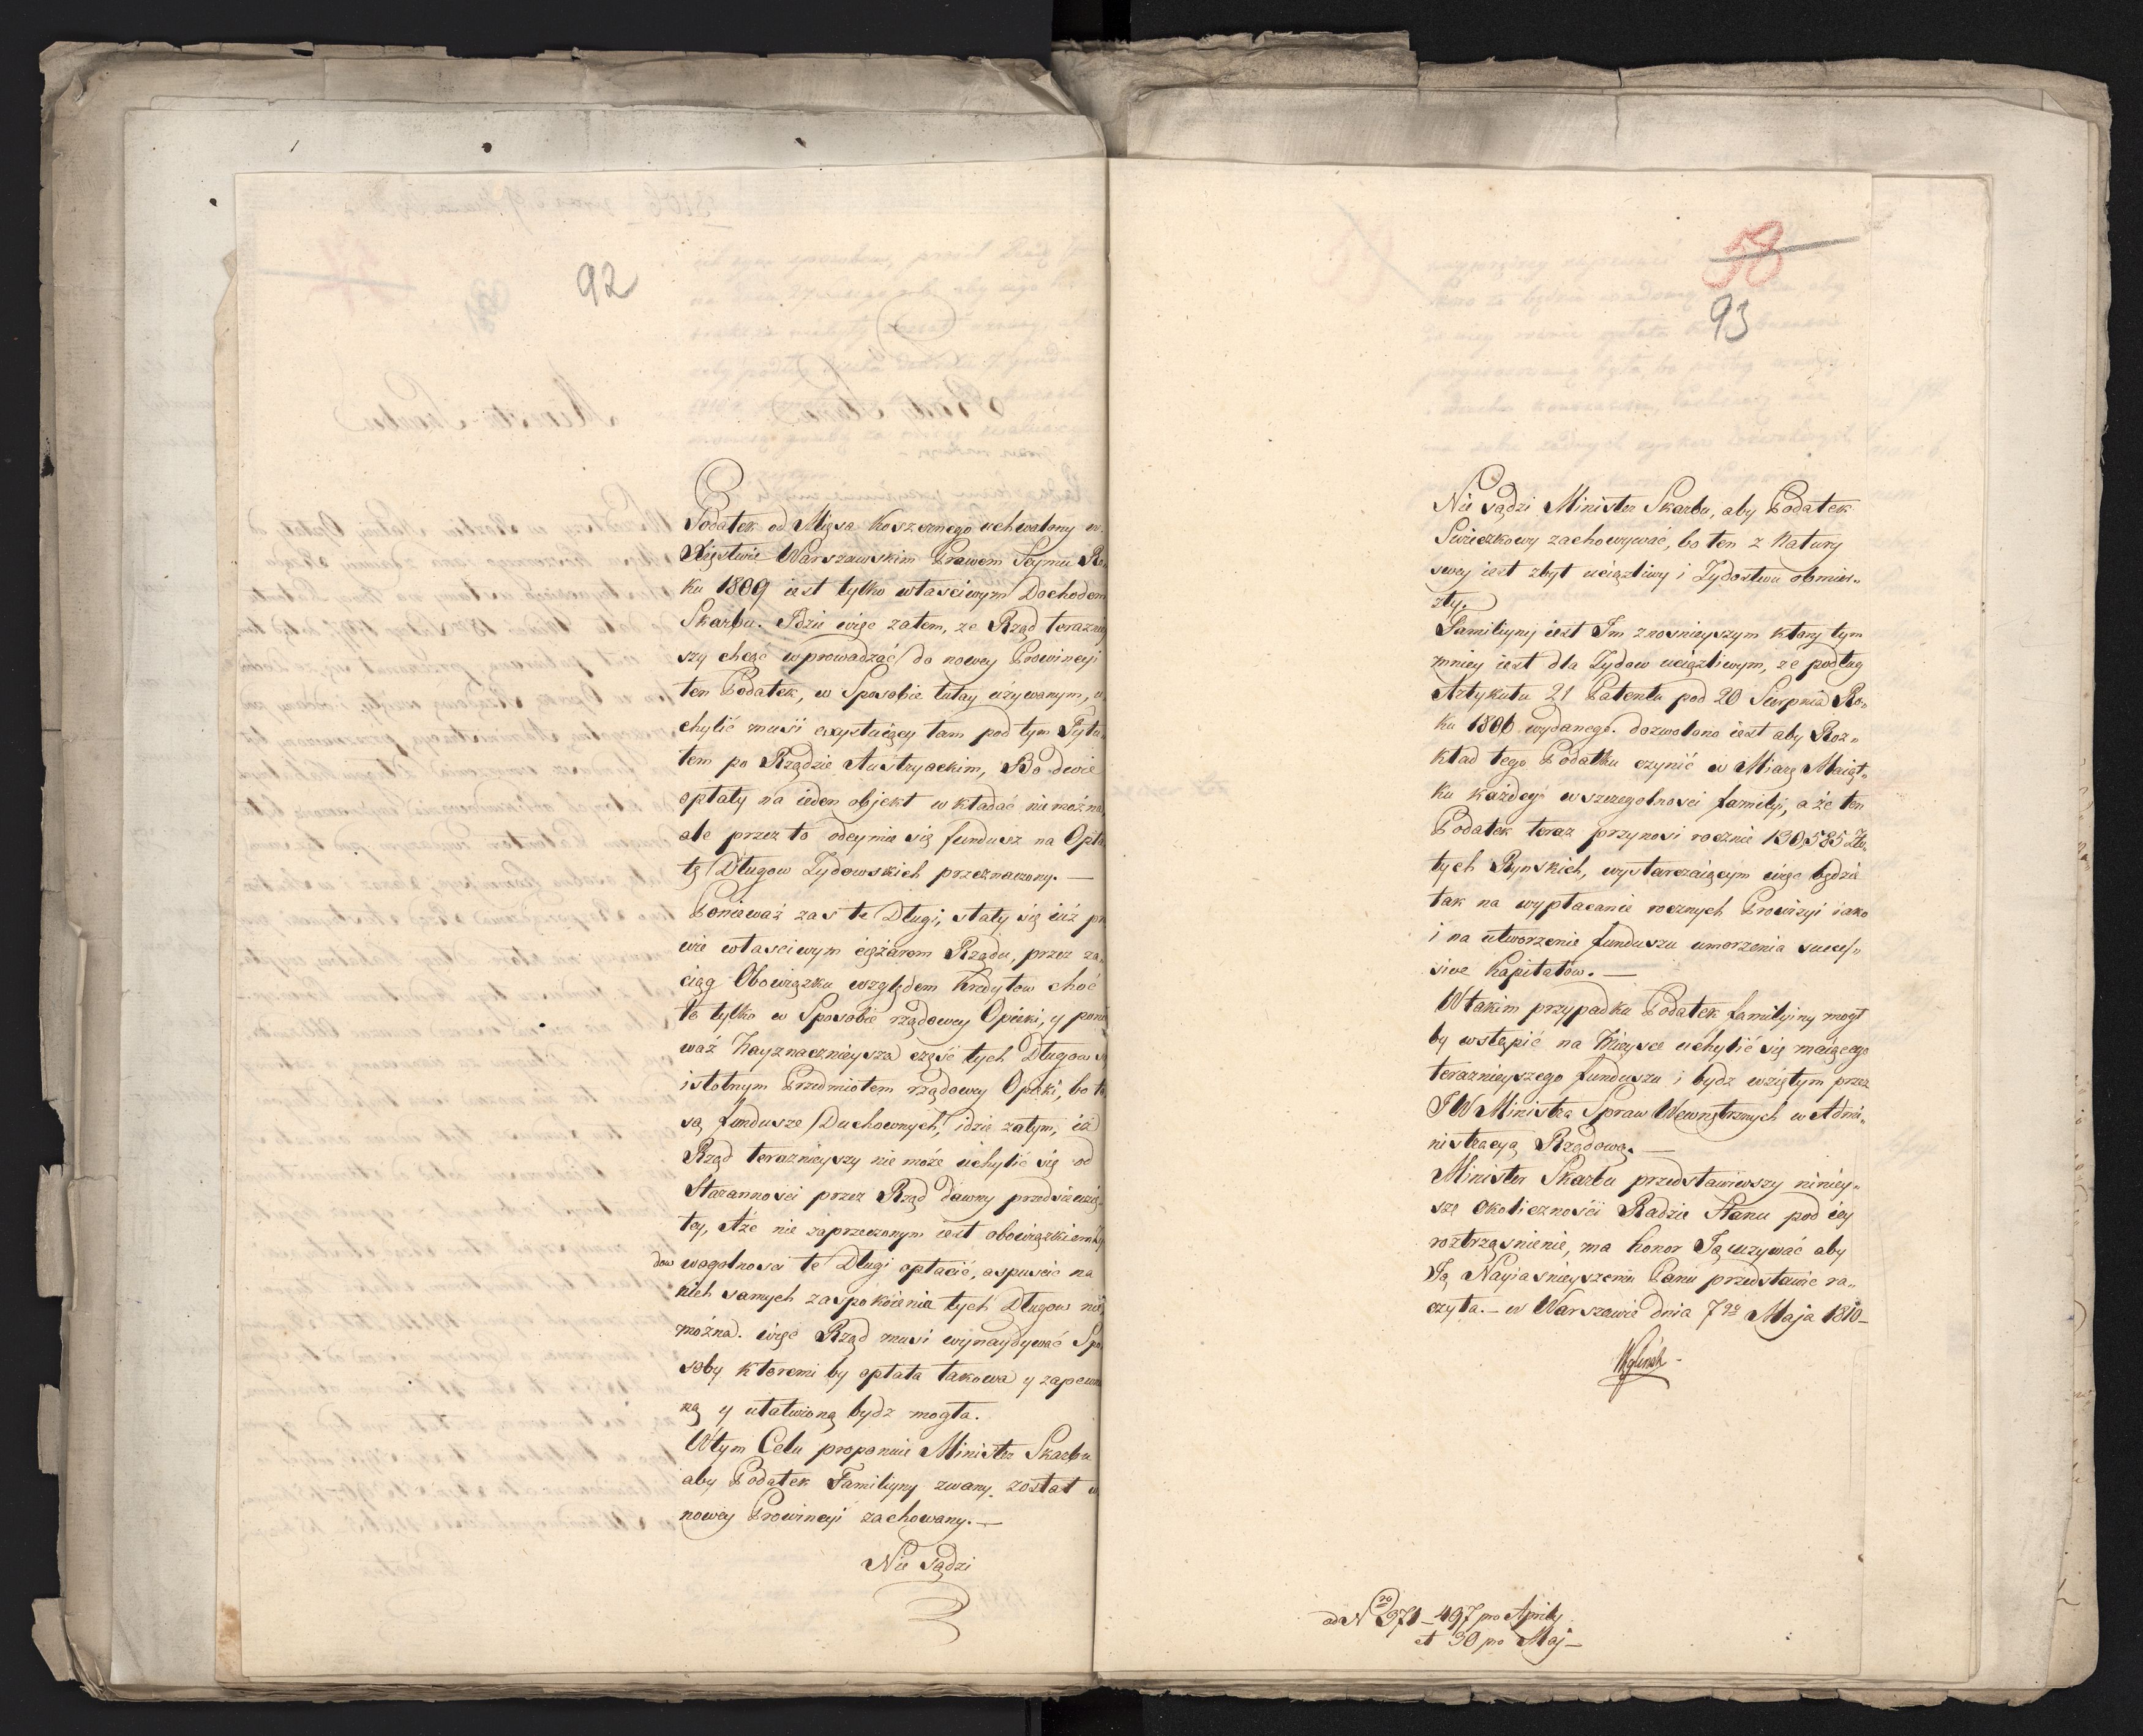 92
Podatek od Mięsa Koszernego uchwalony w
Xięstwie Warszawskim Prawem Seymu Ro„
ku 1809 iest tylko własciwym Dochodem
Skarbu. Idzie więc zatem, ze Rząd teraznie„
szy chcąc wprowadzać do nowey Prowincyi
ten Podatek, w Sposobie tutay używanym, u
chylić musi exystuiący tam pod tym Tytu„
łem po Rządzie Austryackim, Bo dwie
opłaty na ieden objekt wkładać nie można,
ale przez to odeymie się fundusz na Opła
tę Długow Zydowskich przeznaczony. —
Ponieważ zas te Długi, stały się iuż pra
wie własciwym ciężarem Rządu, przez za„
ciąg Obowiązku względem Kredytow choć
to tylko w Sposobie rządowey Opieki, y ponie
waż Nayznacznieysza część tych Długow są
istotnym Przedmiotem rządowey Opieki, bo to
są fundusze Duchownych, idzie zatym, iż
Rząd teraznieyszy nie może uchylić się od
Starannosci przez Rząd dawny przedsięwzię„
tey, Aże nie zaprzeczonym iest obowiązkiem Zy
dow wogolnosci te Długi opłacić, a spuscić na
nich samych zaspokoienie tych Długow nie
można. więc Rząd musi wynaydywać Spo
soby ktoremi by opłata takowa y zapewnio
ną y ułatwioną bydz mogła.
W tym Celu proponuie Minister Skarbu
aby Podatek Familiyny zwany, został w
nowey Prowincyi zachowany. —
Nie sądzi
58
93
Nie sądzi Minister Skarbu, aby Podatek
Swieczkowy zachowywać, bo ten z Natury
swey iest zbyt uciązliwy i Zydostwu obmier„
zły.
Familiyny iest Im znosnieyszym ktory tym
mniey iest dla Zydow uciązliwym, ze podług
Artykułu 21 Patentu pod 20 Sierpnia Ro„
ku 1806 wydanego. dozwolono iest aby Roz„
kład tego Podatku czynić w Miarę Maiąt„
ku każdey w szczegolnosci familyi, a że ten
Podatek teraz przynosi rocznie 130,585 Zło„
tych Rynskich, wystarczaiącym więc będzie
tak na wypłacanie rocznych Prowizyi iako
i na utworzenie funduszu umorzenia succes„
sive Kapitałow. —
W takim przypadku Podatek familiyiny mogł
by wstąpić na Mieysce uchylić się maiącego
teraznieyszego funduszu i bydz wziętym przez
JW Ministra Spraw Wewnętrznych w Admi„
nistracyą Rządową. —
Minister Skarbu przedstawiwszy niniey„
sze okolicznosci Radzie Stanu pod iey
roztrząsnienie, ma honor Ją wzywać aby
Ją Nayiasnieyszemu Panu przedstawić ra„
czyła. — w Warszawie dnia 7go Maja 1810 —
Węglensk
ad Nro 371 — 497 pro Aprily
et 30 pro Maj —